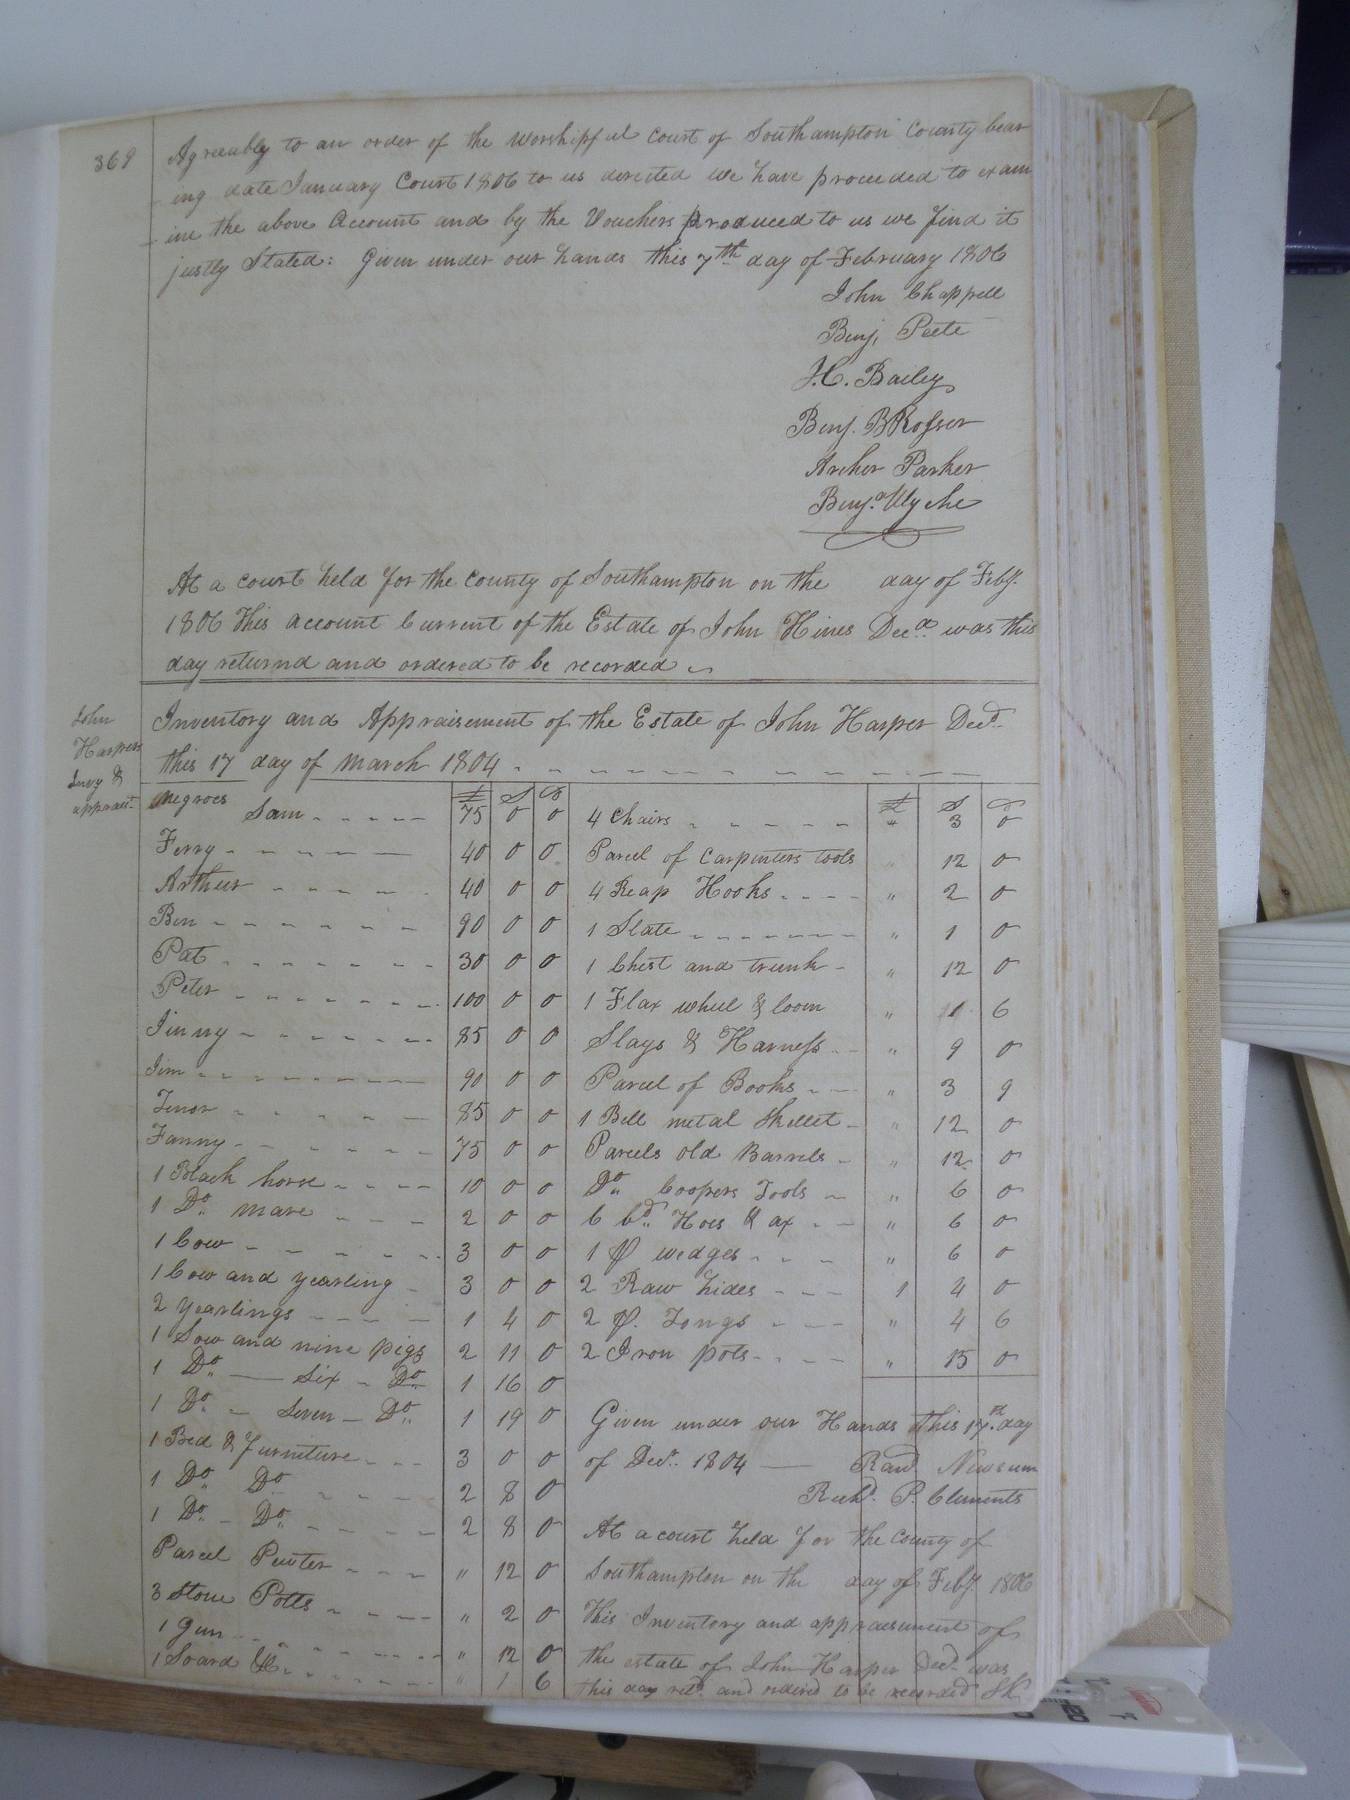 369
Agreeably to an order of the worshipful court of Southampton County bear
ing date January Court 1806 to us directed we have proceeded to exam
ine the above Account and by the Vouchers produced to us we find it
justly Stated: Given under our hands this 7th day of February 1806
John Chappell
Benj. Peete
J.C. Bailey
Benj. B Rosser
Archer Parker
Benja. Wyche
At a court held for the County of Southampton on the day of Feby.
1806 This account Current of the Estate of John Hines Decd. was this
day returnd and ordered to be recorded
John
Harpers
Invy &
apprait.
Inventory and Appraisement of the Estate of John Harper Decd.
this 17 day of march 1804
£ S D
Negroes
Sam 75 0 0
Ferry 40 0 0
Arthur 40 0 0
Ben 90 0 0
Pat 30 0 0
Peter 100 0 0
Jinny 85 0 0
Jim 90 0 0
Tenor 85 0 0
Fanny 75 0 0
1 Black horse 10 0 0
1 Do. mare 2 0 0
1 Cow 3 0 0
1 Cow and yearling 3 0 0
2 yearlings 1 4 0
1 Sow and nine pigs 2 11 0
1 Do. Six Do. 1 16 0
1 Do. Seven Do. 1 19 0
1 Bed & furniture 3 0 0
1 Do. Do. 2 8 0
1 Do. Do. 2 8 0
Parcel Pewter " 12 0
3 Stone Potts " 2 0
1 Gun " 12 0
1 Soard &c. " 1 6
£ S D
4 Chairs " 3 0
Parcel of Carpenters tools " 12 0
4 Reap Hooks " 2 0
1 Slate " 1 0
1 Chest and trunk " 12 0
1 Flax wheel & loom " 1 6
Slays & Harness " 9 0
Parcel of Books " 3 9
1 Bell metal Skillet " 12 0
Parcels old Barrels " 12 0
Do. Coopers Tools " 6 0
6 Hoes & ax " 6 0
1 P wedges " 6 0
2 Raw hides 1 4 0
2 P. Tongs " 4 6
2 Iron pots " 15 0
Given under our Hands this 17th day
of Decr. 1804 Rand. Newsum
Richd. P. Clements
At a court held for the County of
Southampton on the day of Feby. 1806
This Inventory and appraisement of
the estate of John Harper Decd. was
this day retd. and ordered to be recorded